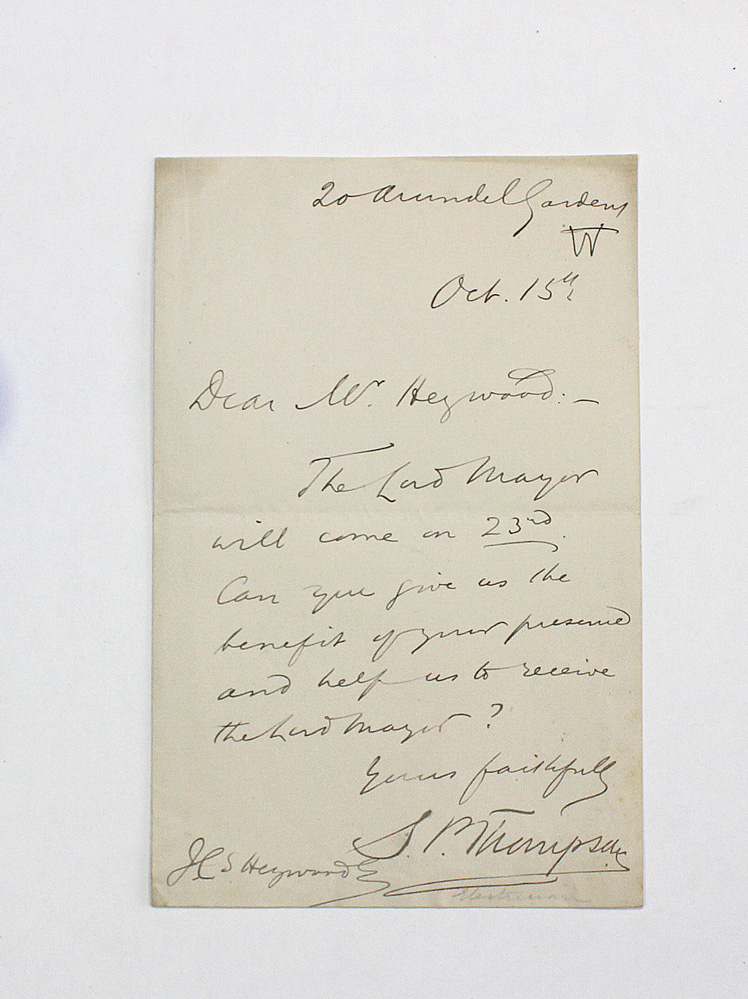 20 Arundel Gardens
W
Oct. 15th
Dear Mr. Heywood:—
The Lord Mayor
will come on 23rd.
Can you give us the
benefit of your presence
and help us to receive
the Lord Mayor?
Yours faithfully
S. P. Thompson
J C S Heywood Esq